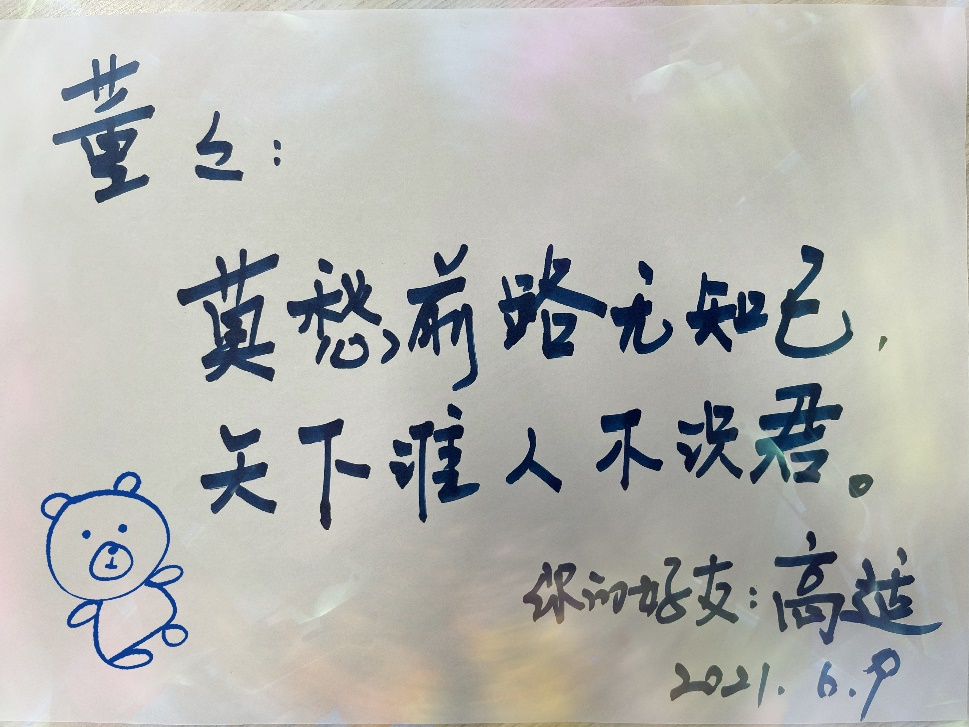 董么:
莫愁前路无知己,
天下谁人不识君。
你的好友:高适
2021.6.9